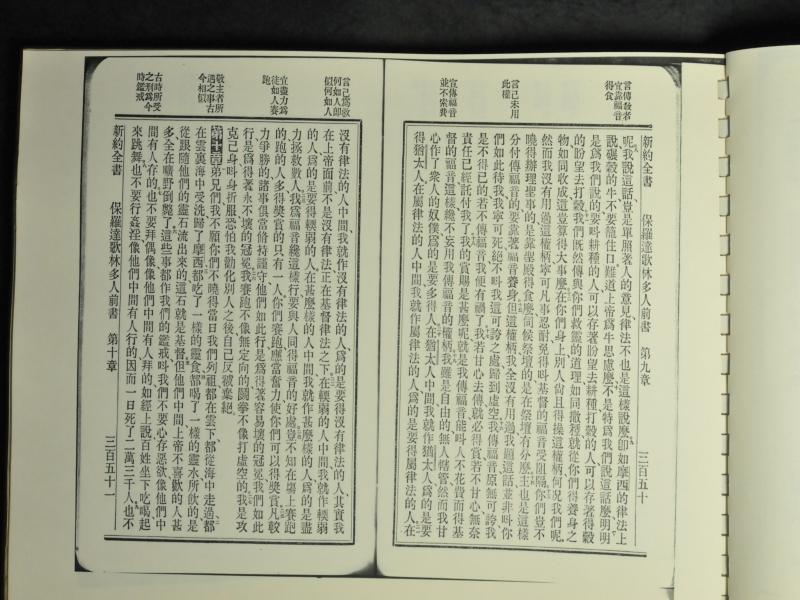 新約全書　保羅達歌林多人前書　第九章　三百五十
言傳教者
宜靠福音
得食
言己未用
此權
宣傳福音
並不索費
呢我說這話豈是單照著人的意見律法不也是這樣說麼卽如摩西的律法上
說碾穀的牛不要籠住口難道上帝爲牛思慮麼不是特爲我們說這話麼明明
是爲我們說的要叫耕種的人可以存著盼望去耕種打穀的人可以存著得穀
的盼望去打穀我們旣然傳與你們救靈的道理如同撒種就從你們得養身之
物如同收成這豈算得大事麼在你們身上別人尙且得操這權柄何況我們呢
然而我沒有用過這權柄寧可凡事忍耐免得叫基督的福音受阻隔你們豈不
曉得辦理聖事的是靠聖殿得食麼伺候祭壇的是在祭壇有分麼主也是這樣
分付傳福音的要靠著福音養身但這權柄我全沒有用過我題這話並非叫你
們如此待我我寧可死絕不叫我這可誇之處歸到虛空我傳福音原無可誇我
是不得已的若不傳福音我便有禍了我若甘心去傳就必得賞若不甘心無奈
責任已經託付我了我的賞賜是甚麼呢就是我傳福音能叫人不花費而得基
督的福音這樣纔不妄用我傳福音的權柄我雖是自由的無人轄管然而我甘
心作了衆人的奴僕爲的是要多得人在猶太人中間我就作猶太人爲的是要
得猶太人在屬律法的人中間我就作屬律法的人爲的是要得屬律法的人在
言己爲欲
何如人卽
似何如人
宜盡力爲
徒如人賽
跑
敬主者所
遇之事古
今相似
古時所受
之刑爲今
時鑑戒
沒有律法的人中間我就作沒有律法的人爲的是要得沒有律法的人其實我
在上帝面前不是沒有律法正在基督律法之下在輭弱的人中間我就作輭弱
的人爲的是要得輭弱的人在甚麼樣的人中間我就作甚麼樣的人爲的是盡
力拯救數人我爲福音纔這樣行要與人同得福音的好處豈不知在場上賽跑
的跑的人多得獎賞的只有一人你們賽跑應當奮力使你們可以得獎賞凡較
力爭勝的諸事俱當脩持謹守他們如此行是爲得著容易壞的冠冕我們如此
行是爲得著永不壞的冠冕我賽跑不像無定向的鬭拳不像打虛空的我是攻
克己身叫身折服恐怕我勸化別人之後自己反被棄絕
第十章弟兄們我不願你們不曉得當日我們列祖都在雲下都從海中走過都
在雲裏海中受洗歸了摩西都吃了一樣的靈食都喝了一樣的靈水所飮的是
從跟隨他們的靈石流出來的這石就是基督但他們中間上帝不喜歡的人甚
多全在曠野倒斃了這些事都作我們的鑑戒叫我們不要心存惡欲像他們中
間有人存的也不要拜偶像像他們中間有人拜的如經上說百姓坐下吃喝起
來跳舞也不要行姦淫像他們中間有人行的因而一日死了二萬三千人也不
新約全書　保羅達歌林多人前書　第十章　三百五十一